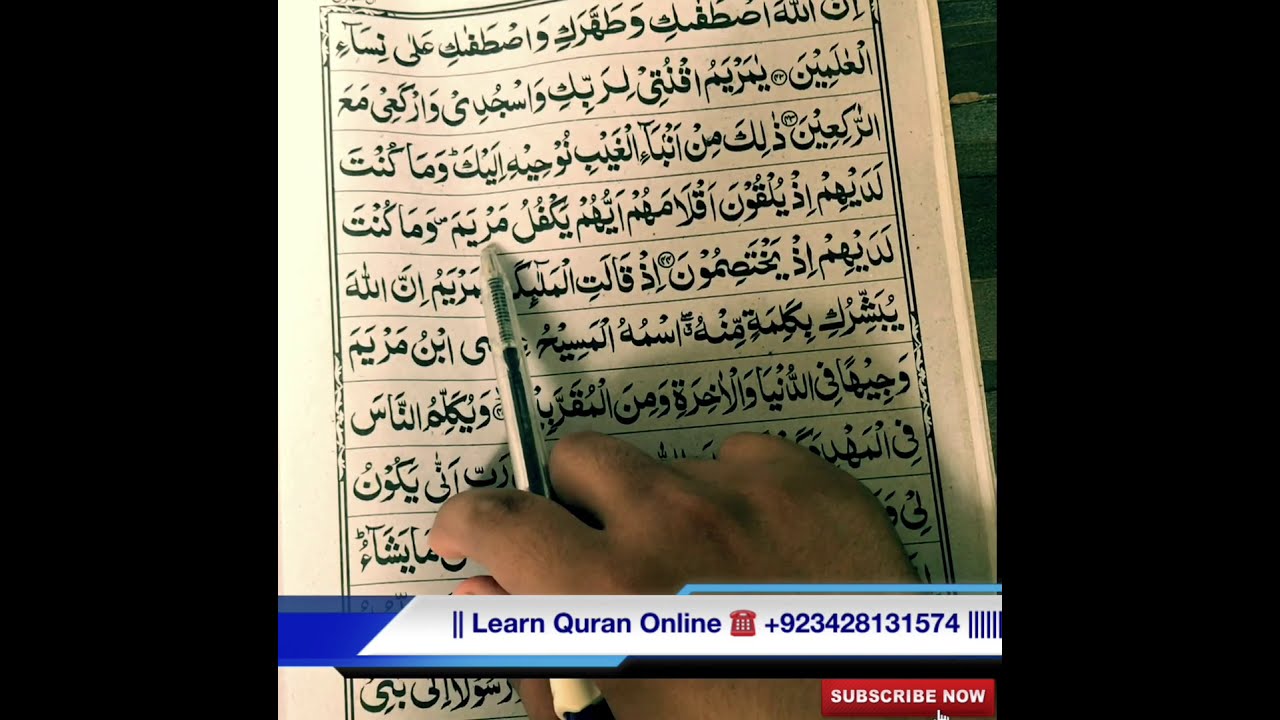 اِنَّ اللّٰهَ اصْطَفٰىكِ وَطَهَّرَكِ وَاصْطَفٰىكِ عَلٰى نِسَآءِ
الْعٰلَمِيْنَ ﴿۴۲﴾ يٰمَرْيَمُ اقْنُتِىْ لِرَبِّكِ وَاسْجُدِىْ وَارْكَعِىْ مَعَ
الرّٰكِعِيْنَ ﴿۴۳﴾ ذٰلِكَ مِنْ اَنْۢبَآءِ الْغَيْبِ نُوْحِيْهِ اِلَيْكَ ؕ وَمَا كُنْتَ
لَدَيْهِمْ اِذْ يُلْقُوْنَ اَقْلَامَهُمْ اَيُّهُمْ يَكْفُلُ مَرْيَمَ ۪ وَمَا كُنْتَ
لَدَيْهِمْ اِذْ يَخْتَصِمُوْنَ ﴿۴۴﴾ اِذْ قَالَتِ الْمَلٰٓئِكَ مَرْيَمُ اِنَّ اللّٰهَ
يُبَشِّرُكِ بِكَلِمَةٍ مِّنْهُ ۖ اسْمُهُ الْمَسِيْحُ عِيْسَى ابْنُ مَرْيَمَ
وَجِيْهًا فِى الدُّنْيَا وَالْاٰخِرَةِ وَمِنَ الْمُقَرَّبِيْنَ وَيُكَلِّمُ النَّاسَ
فِى الْمَهْدِ رَبِّ اَنّٰى يَكُوْنُ
لِىْ مَا يَشَآءُ ؕ
رَسُوْلًا اِلٰى بَنِىْ
|| Learn Quran Online ☎️ +923428131574 ||||||
SUBSCRIBE NOW